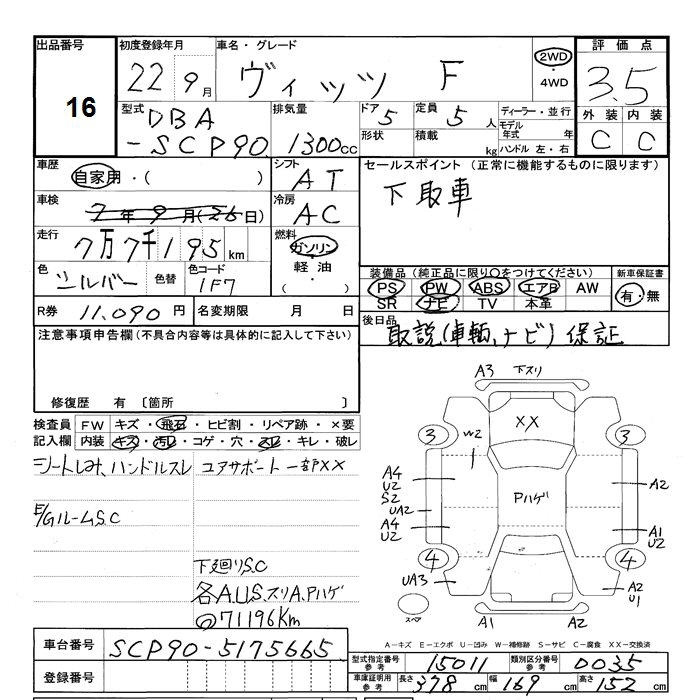 出品番号
16
初度登録年月
22 9月
車名・グレード
ヴィッツ F
2WD
・
4WD
評価点
3.5
外装 内装
C C
型式
DBA
-SCP90
排気量
1300cc
ドア
5
定員
5人
形状
積載 kg
ディーラー・並行
モデル年式 年
ハンドル 左・右
車歴
自家用・( )
シフト
AT
セールスポイント (正常に機能するものに限ります)
下取車
車検
7年9月(26日)
冷房
AC
走行
7万7千195km
燃料
ガソリン
軽油
・
( )
色
シルバー
色替
色コード
1F7
装備品 (純正品に限り○をつけてください)
PS PW ABS エアB AW
SR ナビ TV 本革
新車保証書
有・無
R券 11,090円
名変期限 月 日
後日品
取説(車輌、ナビ) 保証
注意事項申告欄 (不具合内容等は具体的に記入して下さい)
修復歴 有 〔箇所 〕
検査員記入欄
FW キズ・飛石・ヒビ割・リペア跡・×要
内装 キズ・汚レ・コゲ・穴・スレ・キレ・破レ
シートしみ、ハンドルスレ
コアサポート一部XX
E/Gルーム S.C
下廻り S.C
各A.U.S.スリA.Pハゲ
@71196Km
A3 下スリ
XX
3
3
W2
A4
U2
S2
UA2
A4
U2
Pハゲ
A2
A1
U2
4
4
UA3
A2
U1
スペア
A1
A2
A-キズ E-エクボ U-凹み W-補修跡 S-サビ C-腐食 XX-交換済
車台番号 SCP90-5175665
登録番号
型式指定番号 参考 15011
類別区分番号 参考 0035
車庫証明用 参考
長さ 378cm
幅 169cm
高さ 152cm